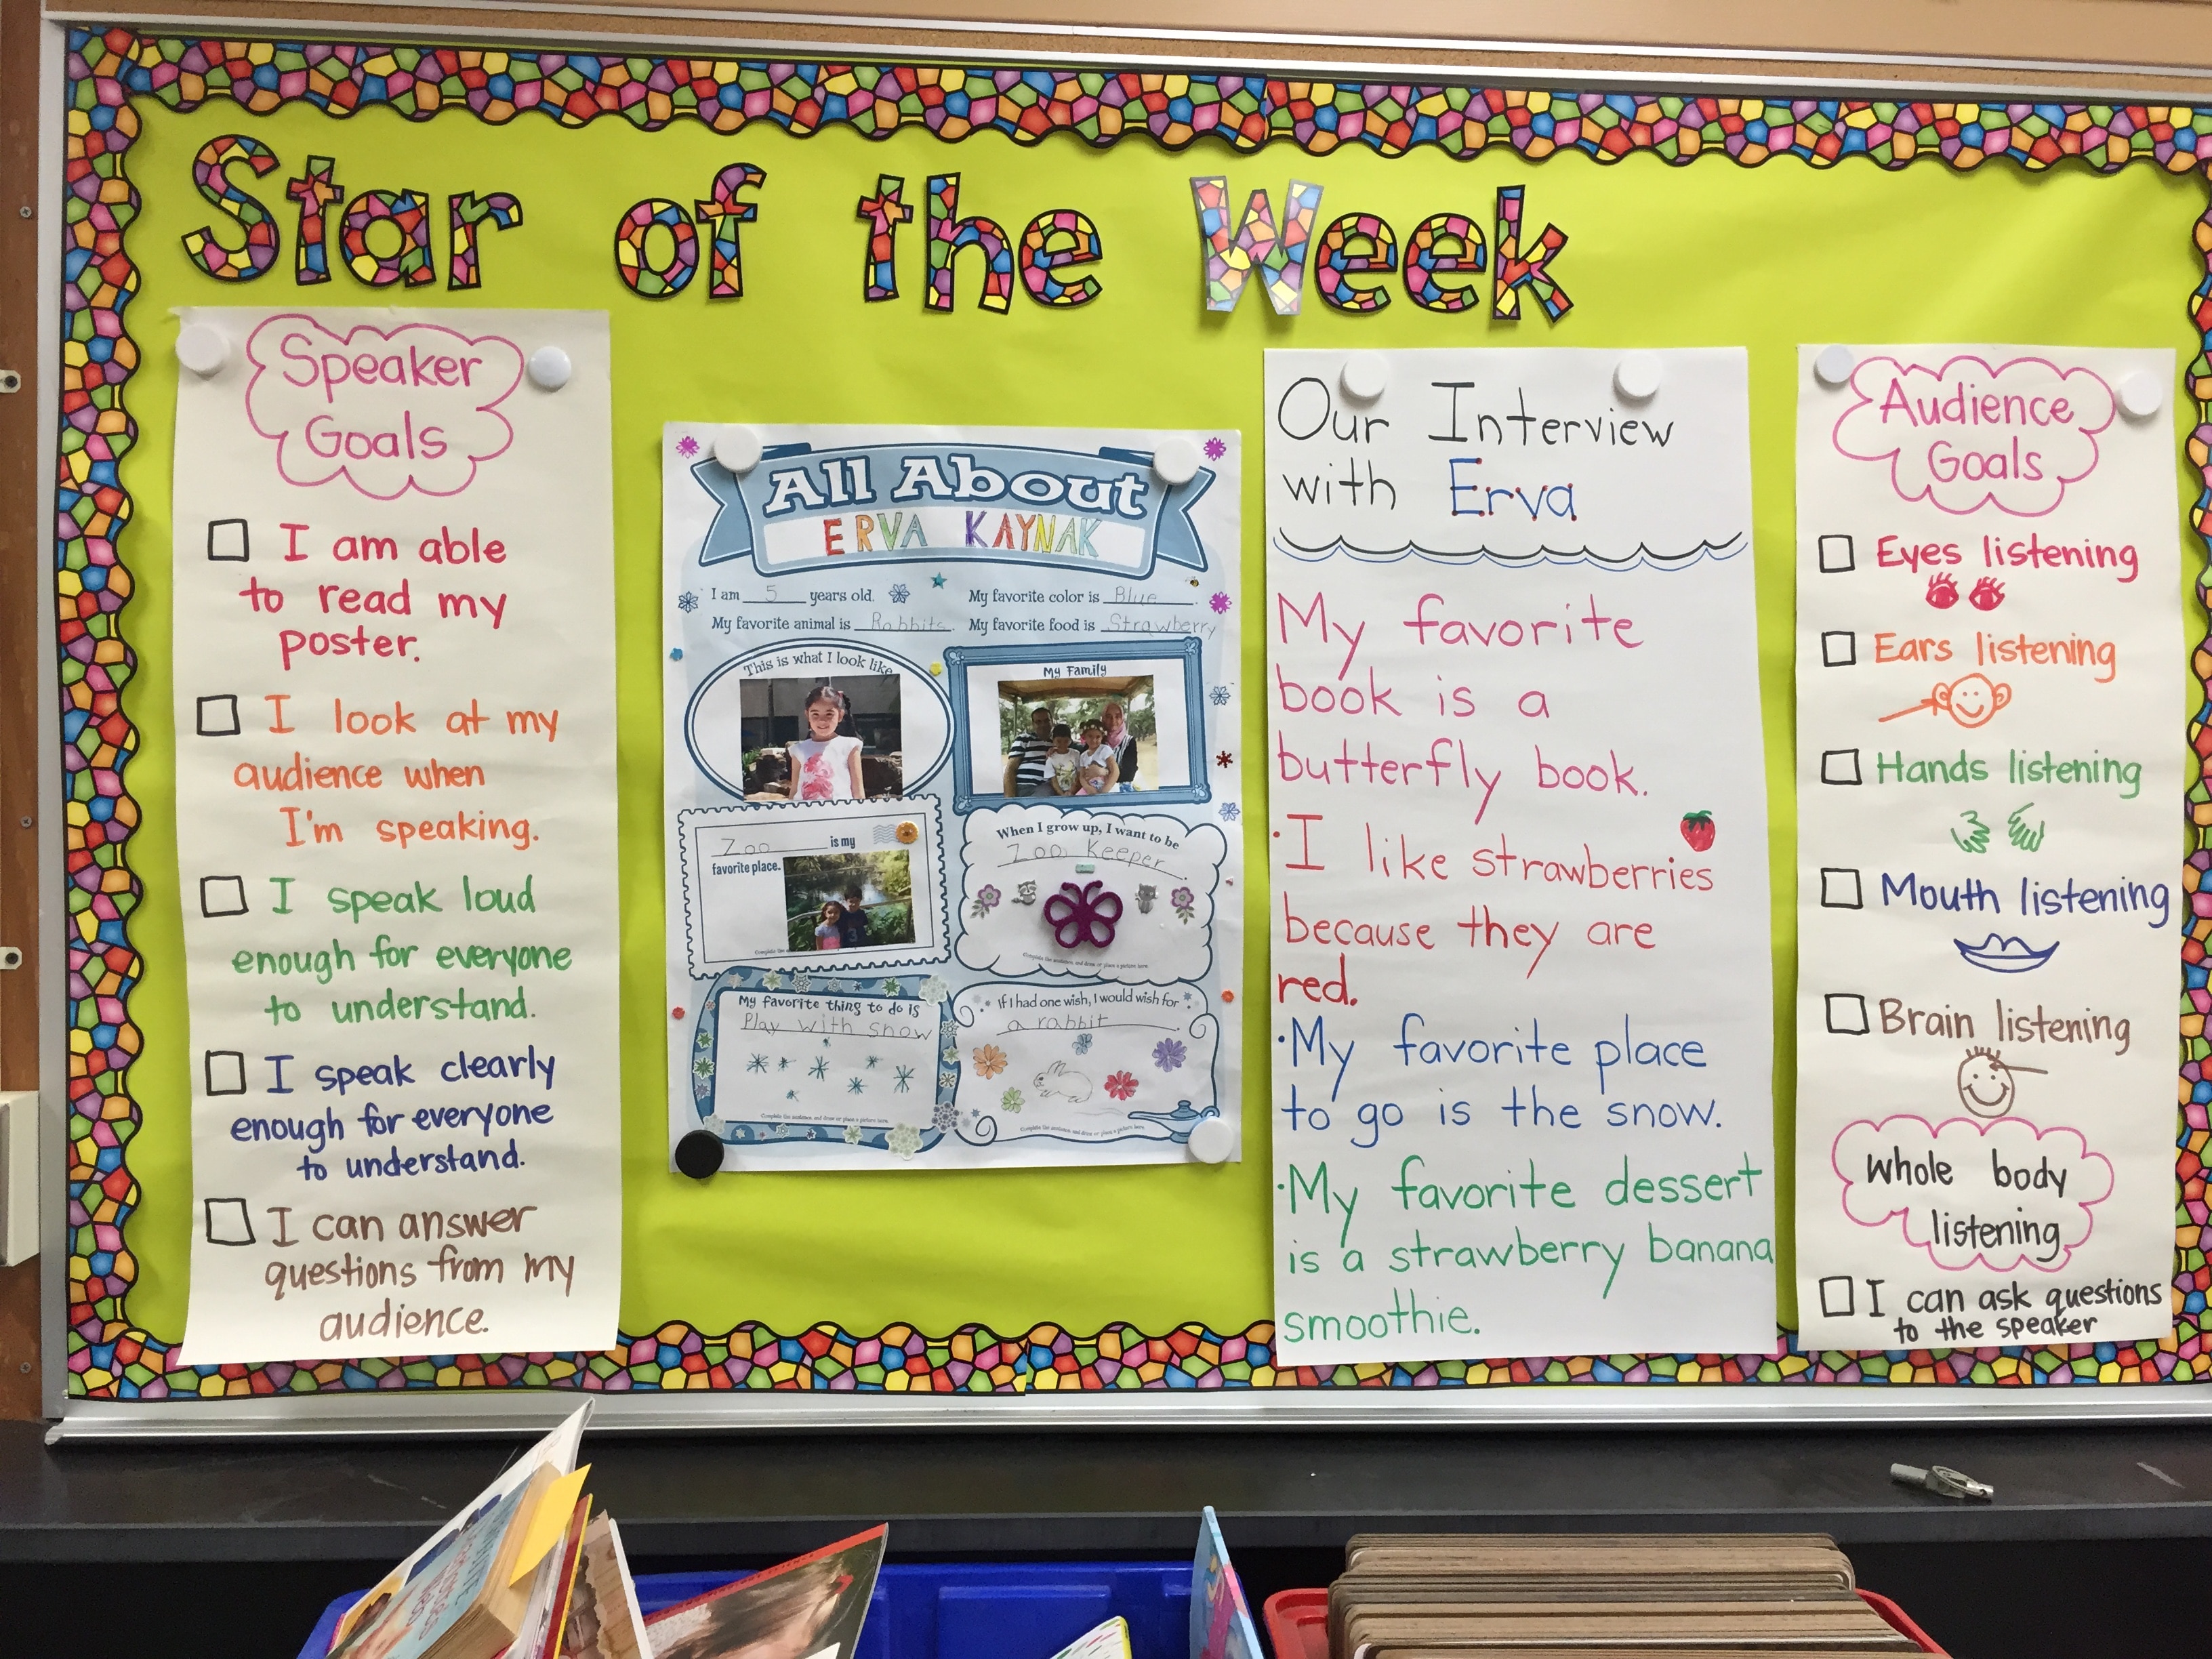 Star of the Week
Speaker
Goals
I am able
to read my
poster.
I look at my
audience when
I'm speaking.
I speak loud
enough for everyone
to understand.
I speak clearly
enough for everyone
to understand.
I can answer
questions from my
audience.
All About
ERVA KAYNAK
I am 5 years old.
My favorite color is Blue.
My favorite animal is Rabbits.
My favorite food is Strawberry
This is what I look like
My Family
Zoo is my
favorite place.
When I grow up, I want to be
Zoo Keeper.
Complete the sentence, and draw or place a picture here.
My favorite thing to do is
Play with snow
Complete the sentence, and draw or place a picture here.
If I had one wish, I would wish for
a rabbit.
Complete the sentence, and draw or place a picture here.
Our Interview
with Erva
My favorite
book is a
butterfly book.
·I like strawberries
because they are
red.
·My favorite place
to go is the snow.
·My favorite dessert
is a strawberry banana
smoothie.
Audience
Goals
Eyes listening
Ears listening
Hands listening
Mouth listening
Brain listening
whole body
listening
I can ask questions
to the speaker